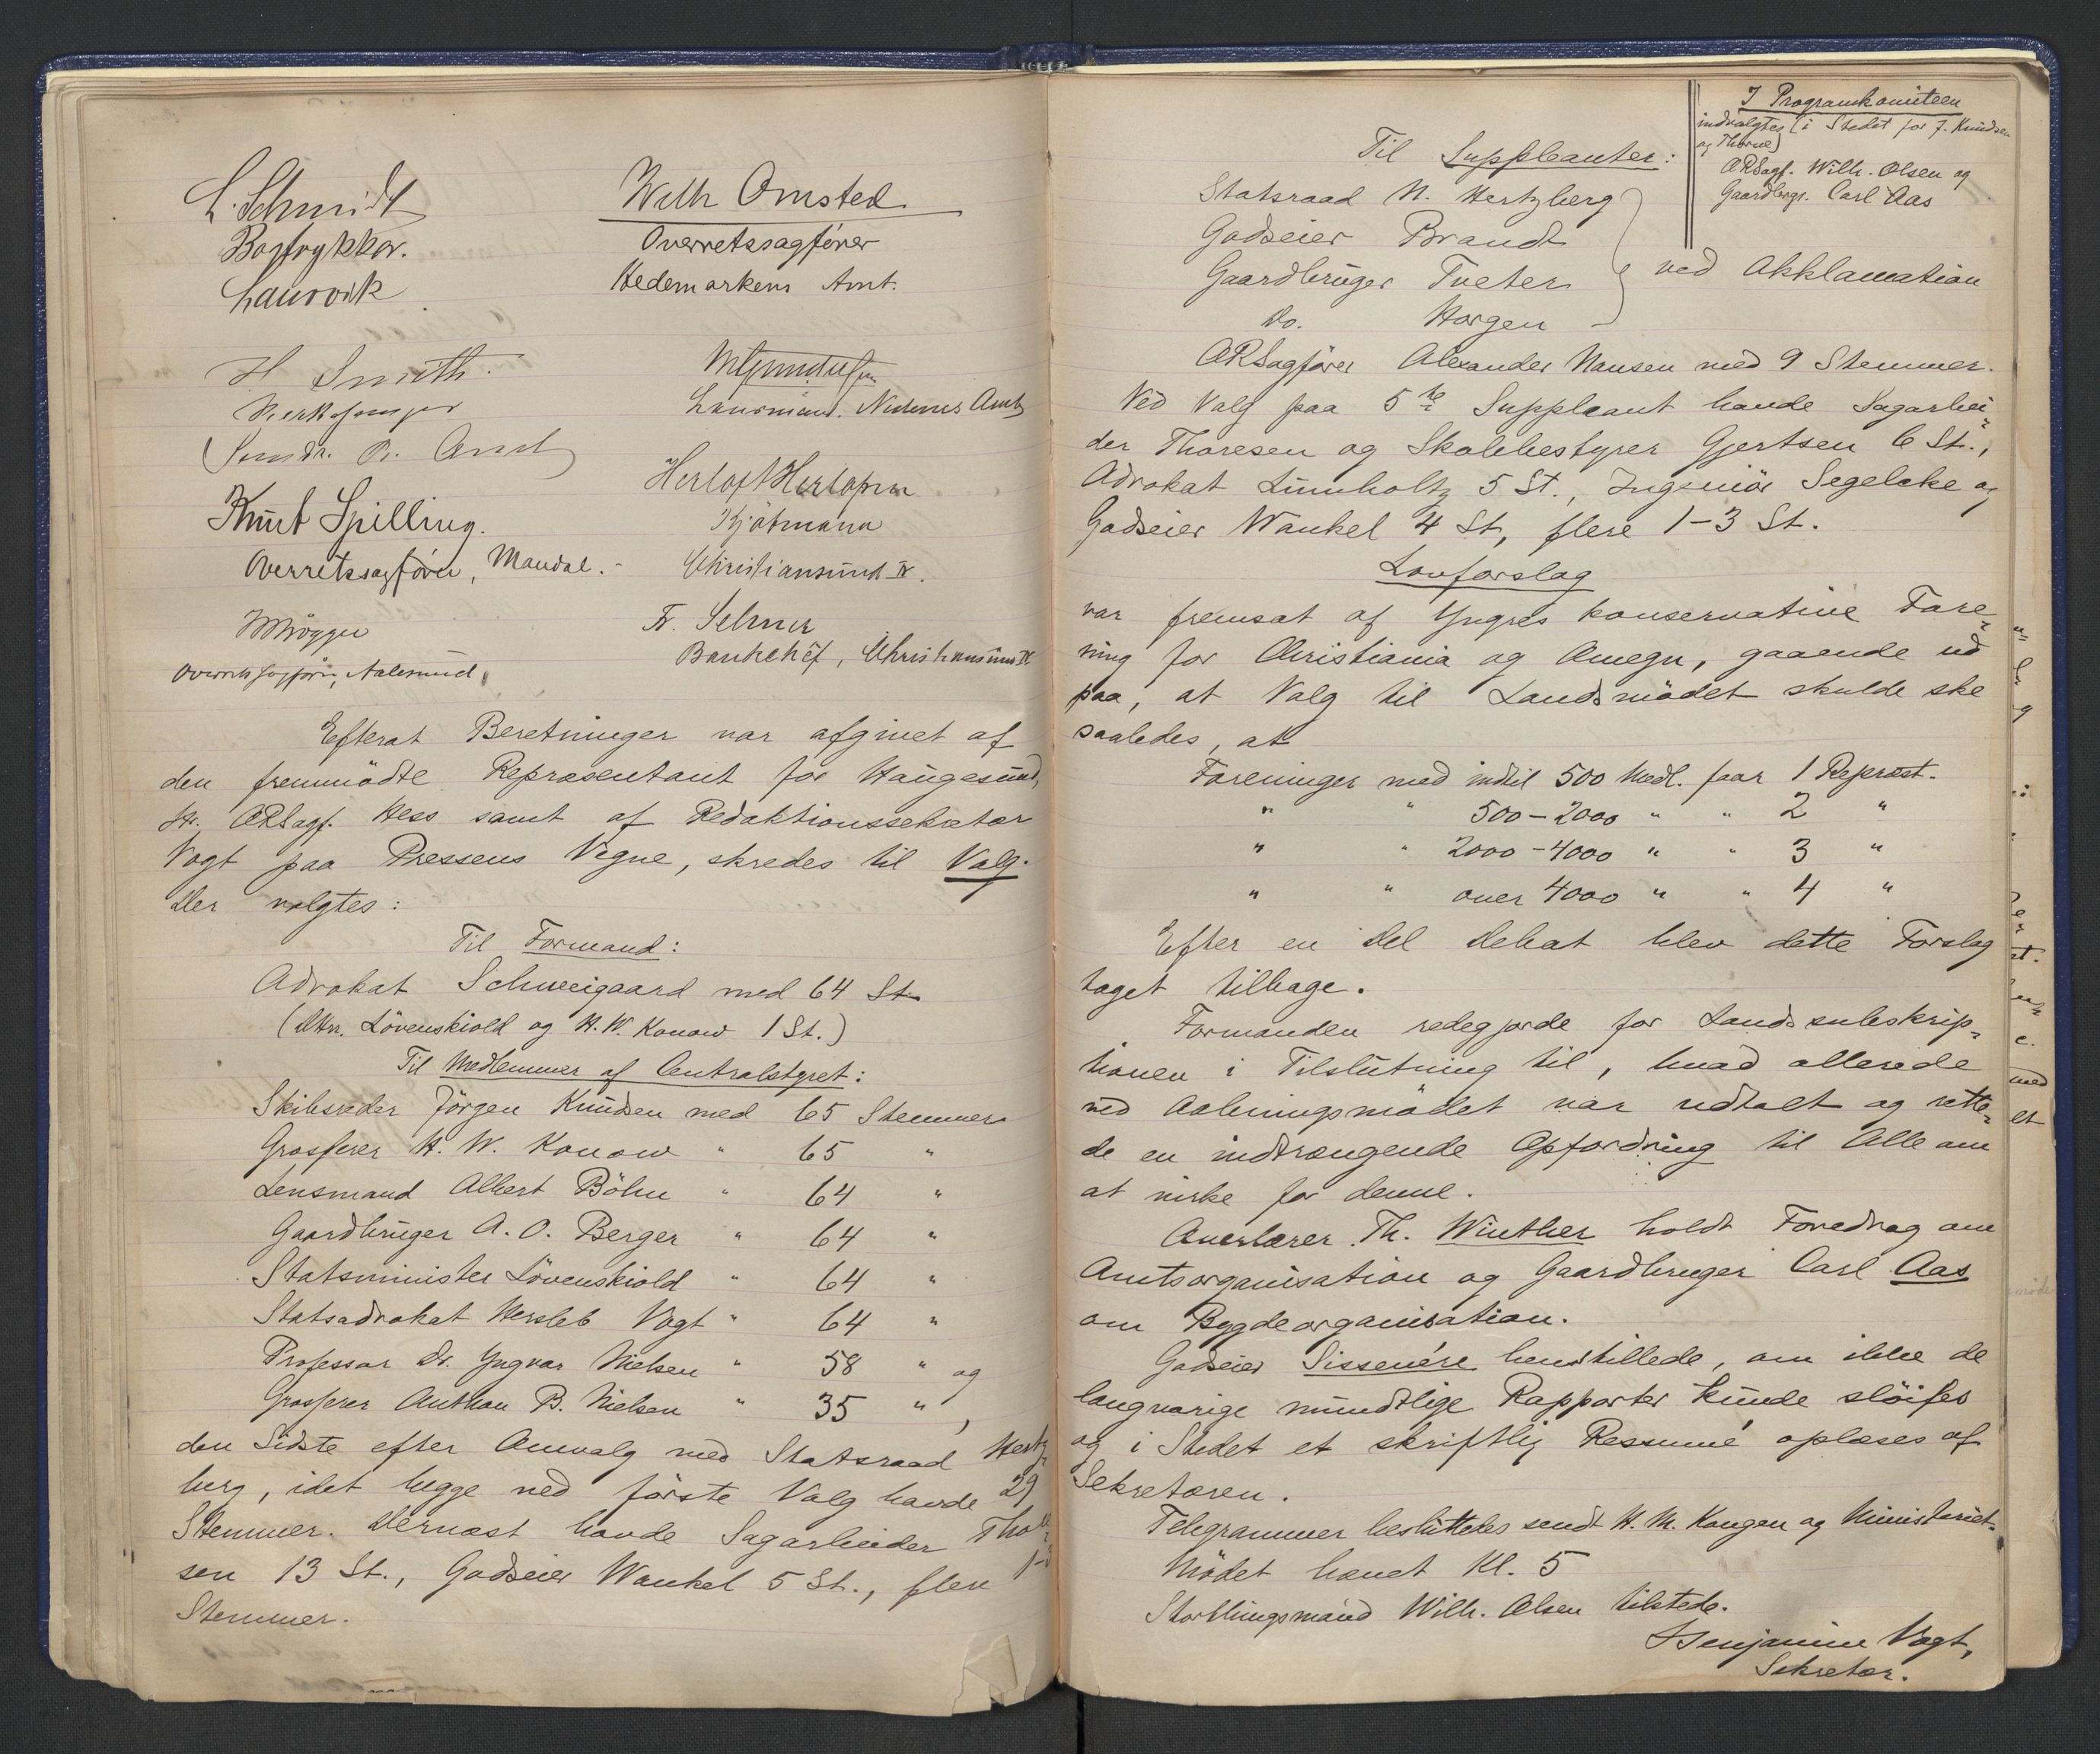 L. Schmidt
Bogtrykker.
Laurvik
H Smith.
Knut Spilling.
Overretssagfører, Mandal.-
Overretssagfører, Aalesund.
Wilh Omsted
Overretssagfører
Hedemarkens Amt.
Lensmand. Nedenes Amt
Herlof Herlofsen
Kjøbmand
Christianssund N.
Fr. Selmer
Bankchef, Christianssund N.
Efterat Beretninger var afgivet af
den fremmødte Repræsentant for Haugesund,
Hr. ORSagf. Hess samt af Redaktionssekretær
Vogt paa Pressens Vegne, skredes til Valg.
Der valgtes:
Til Formand:
Advokat Schweigaard med 64 St.
(Stm. Løvenskiold og H. W. Konow 1 St.)
Til Medlemmer af Centralstyret:
Skibsreder Jörgen Knudsen med 65 Stemmer
Grosserer H. W. Konow " 65 "
Lensmand Albert Böhn " 64 "
Gaardbruger A. O. Berger " 64 "
Statsminister Lövenskiold " 64 "
Statsadvokat Hersleb Vogt " 64 "
Professor Dr. Yngvar Nielsen " 58 " og
Grosserer Anthon B. Nielsen " 35 " ,
den Sidste efter Omvalg med Statsraad Hertz-
berg, idet begge ved første Valg havde 29
Stemmer. Dernæst havde Sagarbeider Thore-
sen 13 St., Godseier Wankel 5 St., flere 1-3
Stemmer.
I Programkomiteen
indvalgtes (i Stedet for J. Knudsen
og Thorne)
ORSagf. Wilh. Olsen og
Gaardbrgr. Carl Aas
Til Suppleanter:
Statsraad N. Hertzberg
Godseier Brandt
Gaardbruger Tveter
Do. Horgen
ved Akklamation
ORSagfører Alexander Hansen med 9 Stemmer.
Ved Valg paa 5te Suppleant havde Sagarbei-
der Thoresen og Skolebestyrer Gjertsen 6 St.,
Advokat Lumholtz 5 St., Ingeniör Segelcke og
Godseier Wankel 4 St, flere 1-3 St.
Lovforslag
var fremsat af Yngres konservative Fore-
ning for Christiania og Omegn, gaaende ud
paa, at Valg til Landsmødet skulde ske
saaledes, at
Foreninger med indtil 500 Medl. faar 1 Repræst.
" " 500-2000 " " 2 "
" " 2000-4000 " " 3 "
" " over 4000 " " 4 "
Efter en Del Debat blev dette Forslag
taget tilbage.
Formanden redegjorde for Landssubskrip-
tionen i Tilslutning til, hvad allerede
ved Aabningsmødet var udtalt og rette-
de en indtrængende Opfordring til Alle om
at virke for denne.
Overlærer Th. Winther holdt Foredrag om
Amtsorganisation og Gaardbruger Carl Aas
om Bygdeorganisation.
Godseier Sissenére henstillede, om ikke de
langvarige mundtlige Rapporter kunde sløifes
og i Stedet et skriftlig Resumé oplæses af
Sekretæren.
Telegrammer besluttedes sendt H. M. Kongen og Ministeriet.
Mødet hævet Kl. 5
Storthingsmand Wilh. Olsen tilstede.
Benjamin Vogt,
Sekretær.